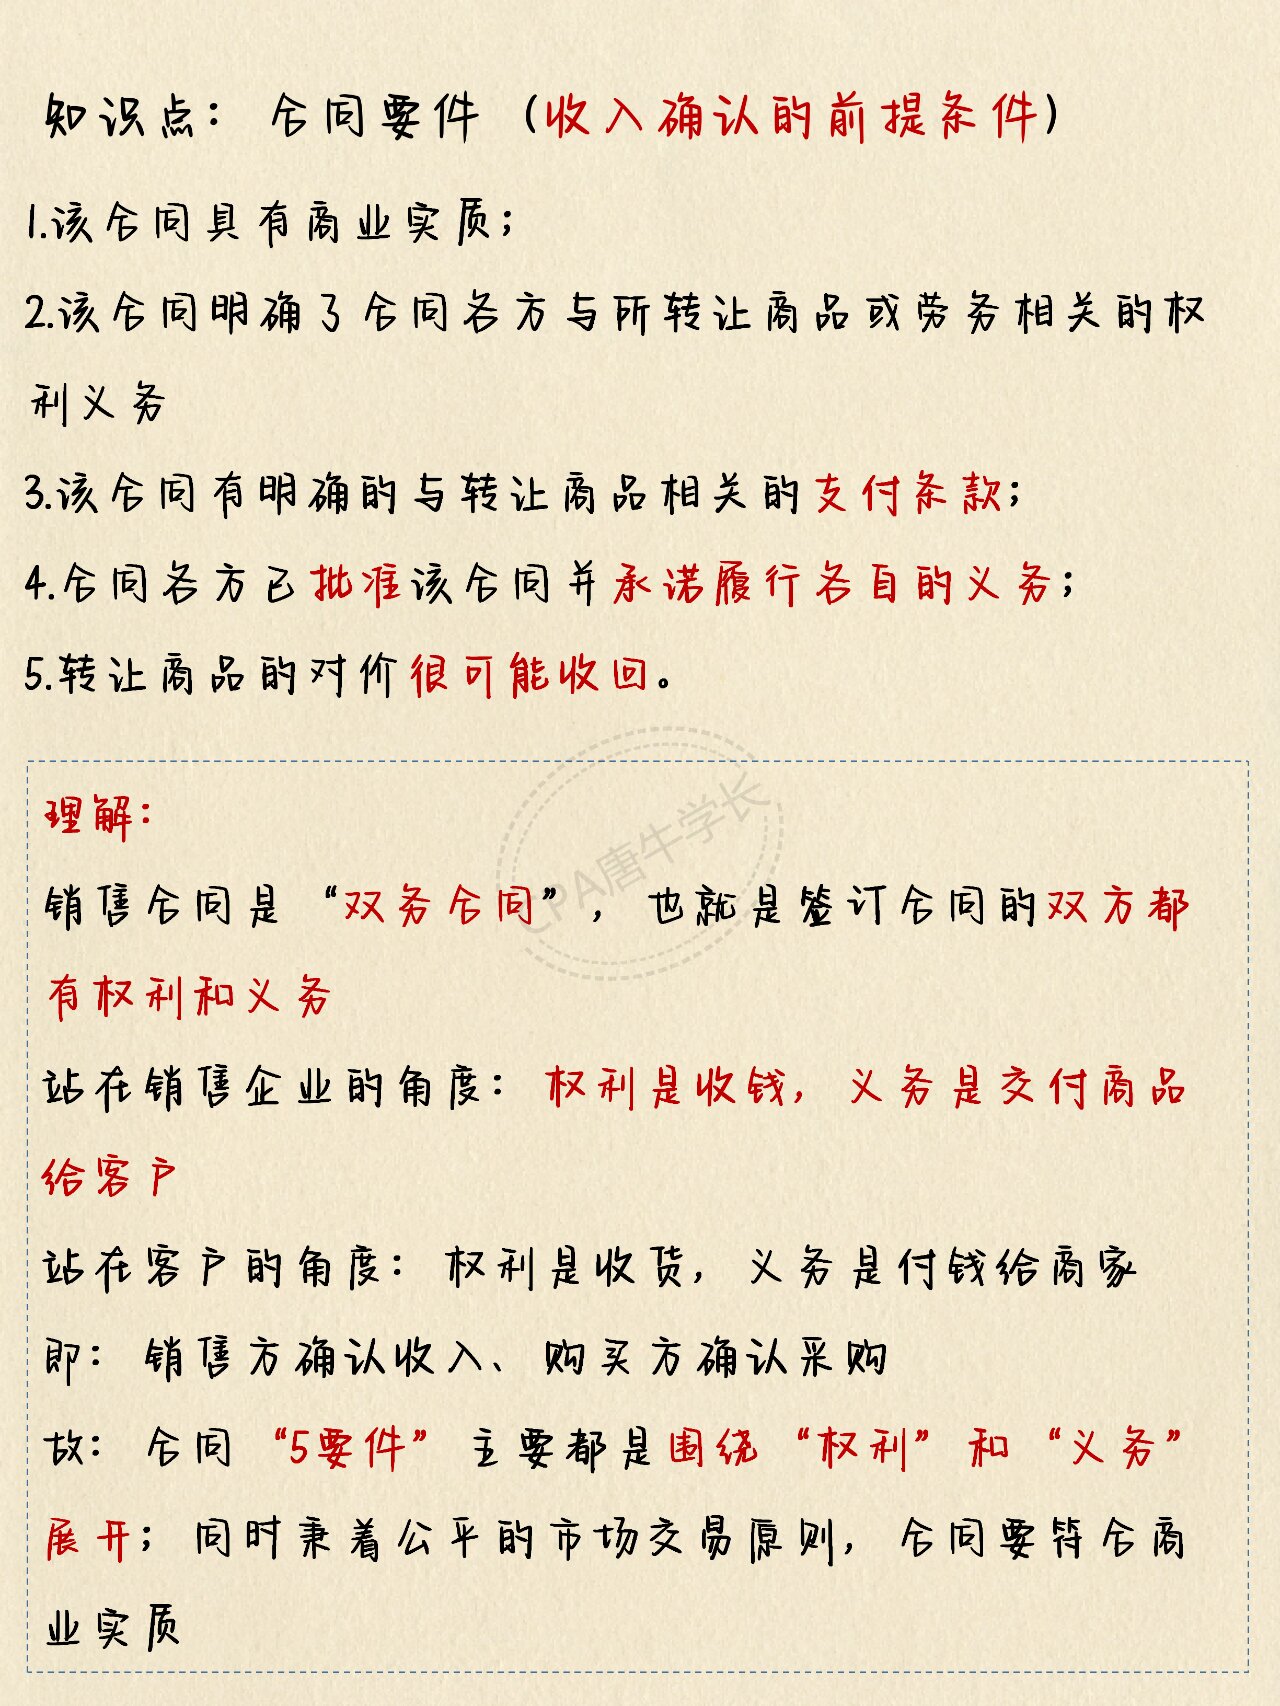 知识点： 合同要件（收入确认的前提条件）
1.该合同具有商业实质；
2.该合同明确了合同各方与所转让商品或劳务相关的权
利义务
3.该合同有明确的与转让商品相关的支付条款；
4.合同各方已批准该合同并承诺履行各自的义务；
5.转让商品的对价很可能收回。
CPA唐牛学长
理解：
销售合同是“双务合同”，也就是签订合同的双方都
有权利和义务
站在销售企业的角度： 权利是收钱，义务是交付商品
给客户
站在客户的角度： 权利是收货，义务是付钱给商家
即： 销售方确认收入、购买方确认采购
故： 合同“5要件”主要都是围绕“权利”和“义务”
展开；同时秉着公平的市场交易原则，合同要符合商
业实质